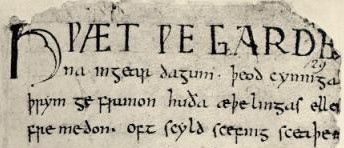 HǷÆT ǷE GARDE
na ingear dagum. þeod cyninga
þrym ge frunon huða æþelingas elle
fre medon. oft scyld scefing sceaþe